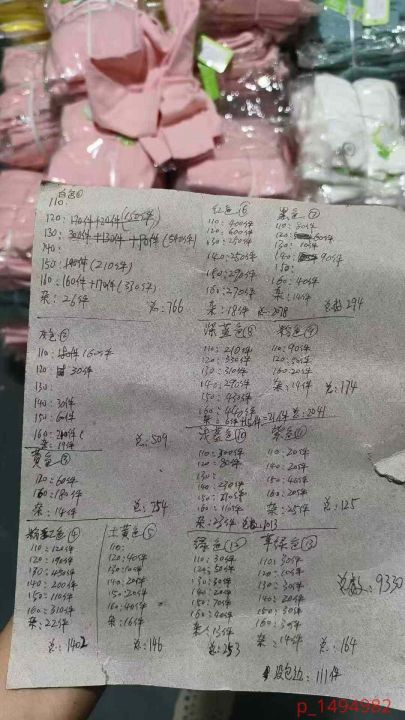 白色①
110:
120: 150件)
130: (540件)
140:
150: 140件(210件)
160: 160件+170件(330件)
杂: 26件
总: 766
红色⑥
110: 400件
120: 600件
130: 250件
140: 250件
150: 290件
160: 270件
杂: 18件 总: 2078
黑色⑦
110: 50件
120:
130: 10件
140: 90件
150:
160: 40件
杂: 14件
总数 294
灰色②
110: 160件
120 30件
130:
140: 30件
150: 60件
160:
杂: 19件
总: 509
深蓝色⑧
110: 210件
120: 330件
130: 310件
140: 290件
150: 450件
160: 440件
总: 2041
粉色⑨
110: 90件
120: 50件
160: 20件
杂: 14件 总: 174
黄色③
120: 60件
160: 180件
杂: 14件
总: 254
浅蓝色⑩
110: 300件
120: 80件
130:
140: 230件
150: 210件
160: 110件
杂: 23件 总数 1013
紫色⑪
110: 20件
140: 20件
150: 40件
160: 20件
杂: 25件 总: 125
粉红色④
110: 120件
120: 190件
130: 450件
140: 200件
150: 110件
160: 310件
杂: 22件
总: 1402
土黄色⑤
110:
120: 40件
130: 10件
140: 20件
150: 20件
160: 40件
杂: 16件
总: 146
绿色⑫
110: 30件
120: 50件
130: 30件
140: 20件
150: 70件
160: 40件
杂: 13件
总: 253
军绿色⑬
110: 30件
120: 30件
130: 30件
140: 20件
150: 30件
160: 30件
杂: 14件
总: 164
总数: 9330
没包边: 111件
p_1494982